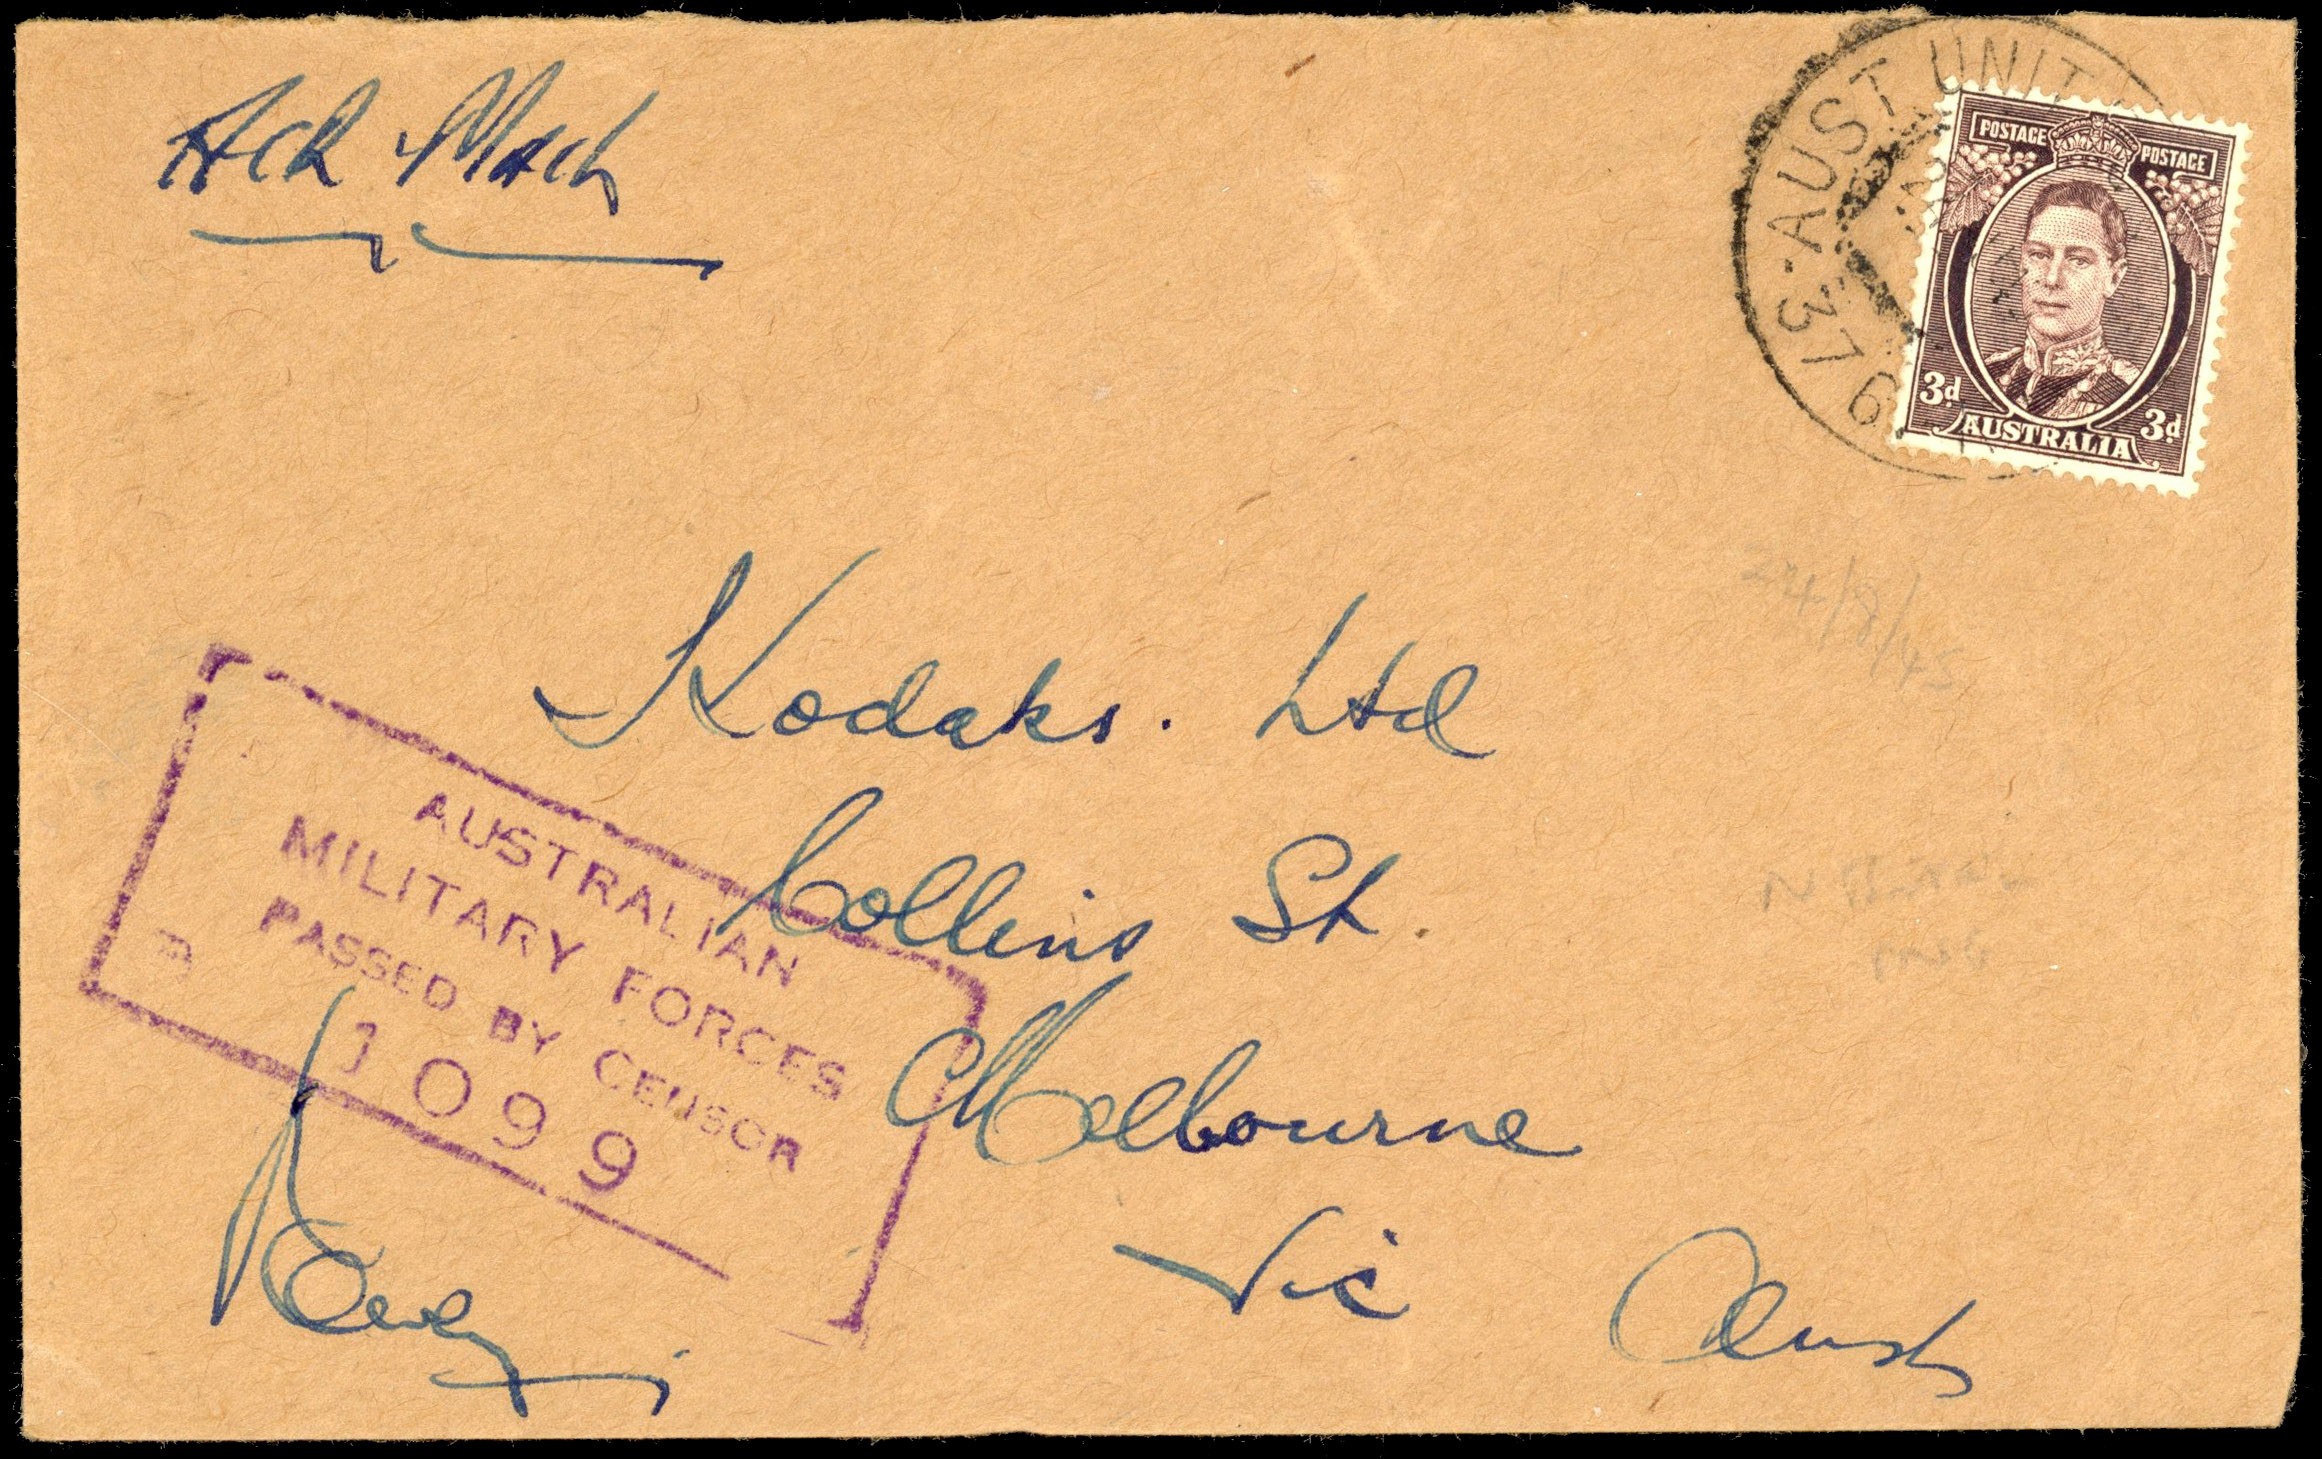 Ack Mack
AUST UNIT
POSTAGE POSTAGE
3d 3d
AUSTRALIA
24/8/45
Kodaks. Ltd
Collins St.
Melbourne
Vic Aust
AUSTRALIAN
MILITARY FORCES
PASSED BY CENSOR
1099